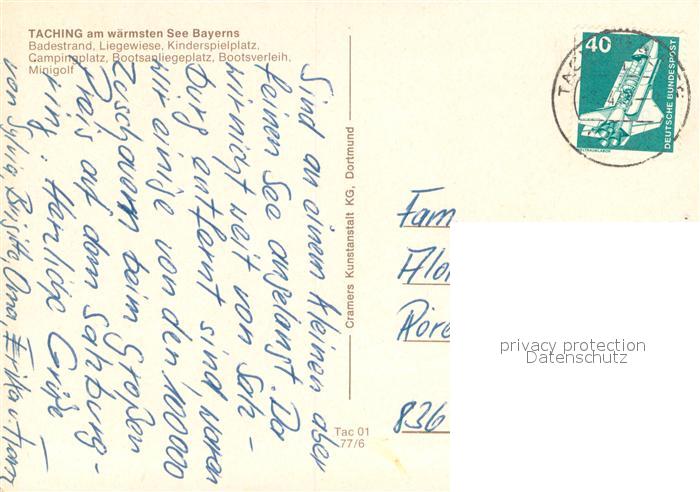 TACHING am wärmsten See Bayerns
Badestrand, Liegewiese, Kinderspielplatz,
Campingplatz, Bootsanliegeplatz, Bootsverleih,
Minigolf
Sind an einem kleinen aber
feinen See angelangt. Da
wir nicht weit von Salz-
burg entfernt sind, waren
wir einige von den 100000
Zuschauern beim Großen
Preis auf dem Salzburg-
ring. Herzliche Grüße –
von Sylvia Brigitte Oma, Erika u. Franz
Cramers Kunstanstalt KG, Dortmund
Tac 01
77/6
40
DEUTSCHE BUNDESPOST
WELTRAUMLABOR
Fam
836
privacy protection
Datenschutz